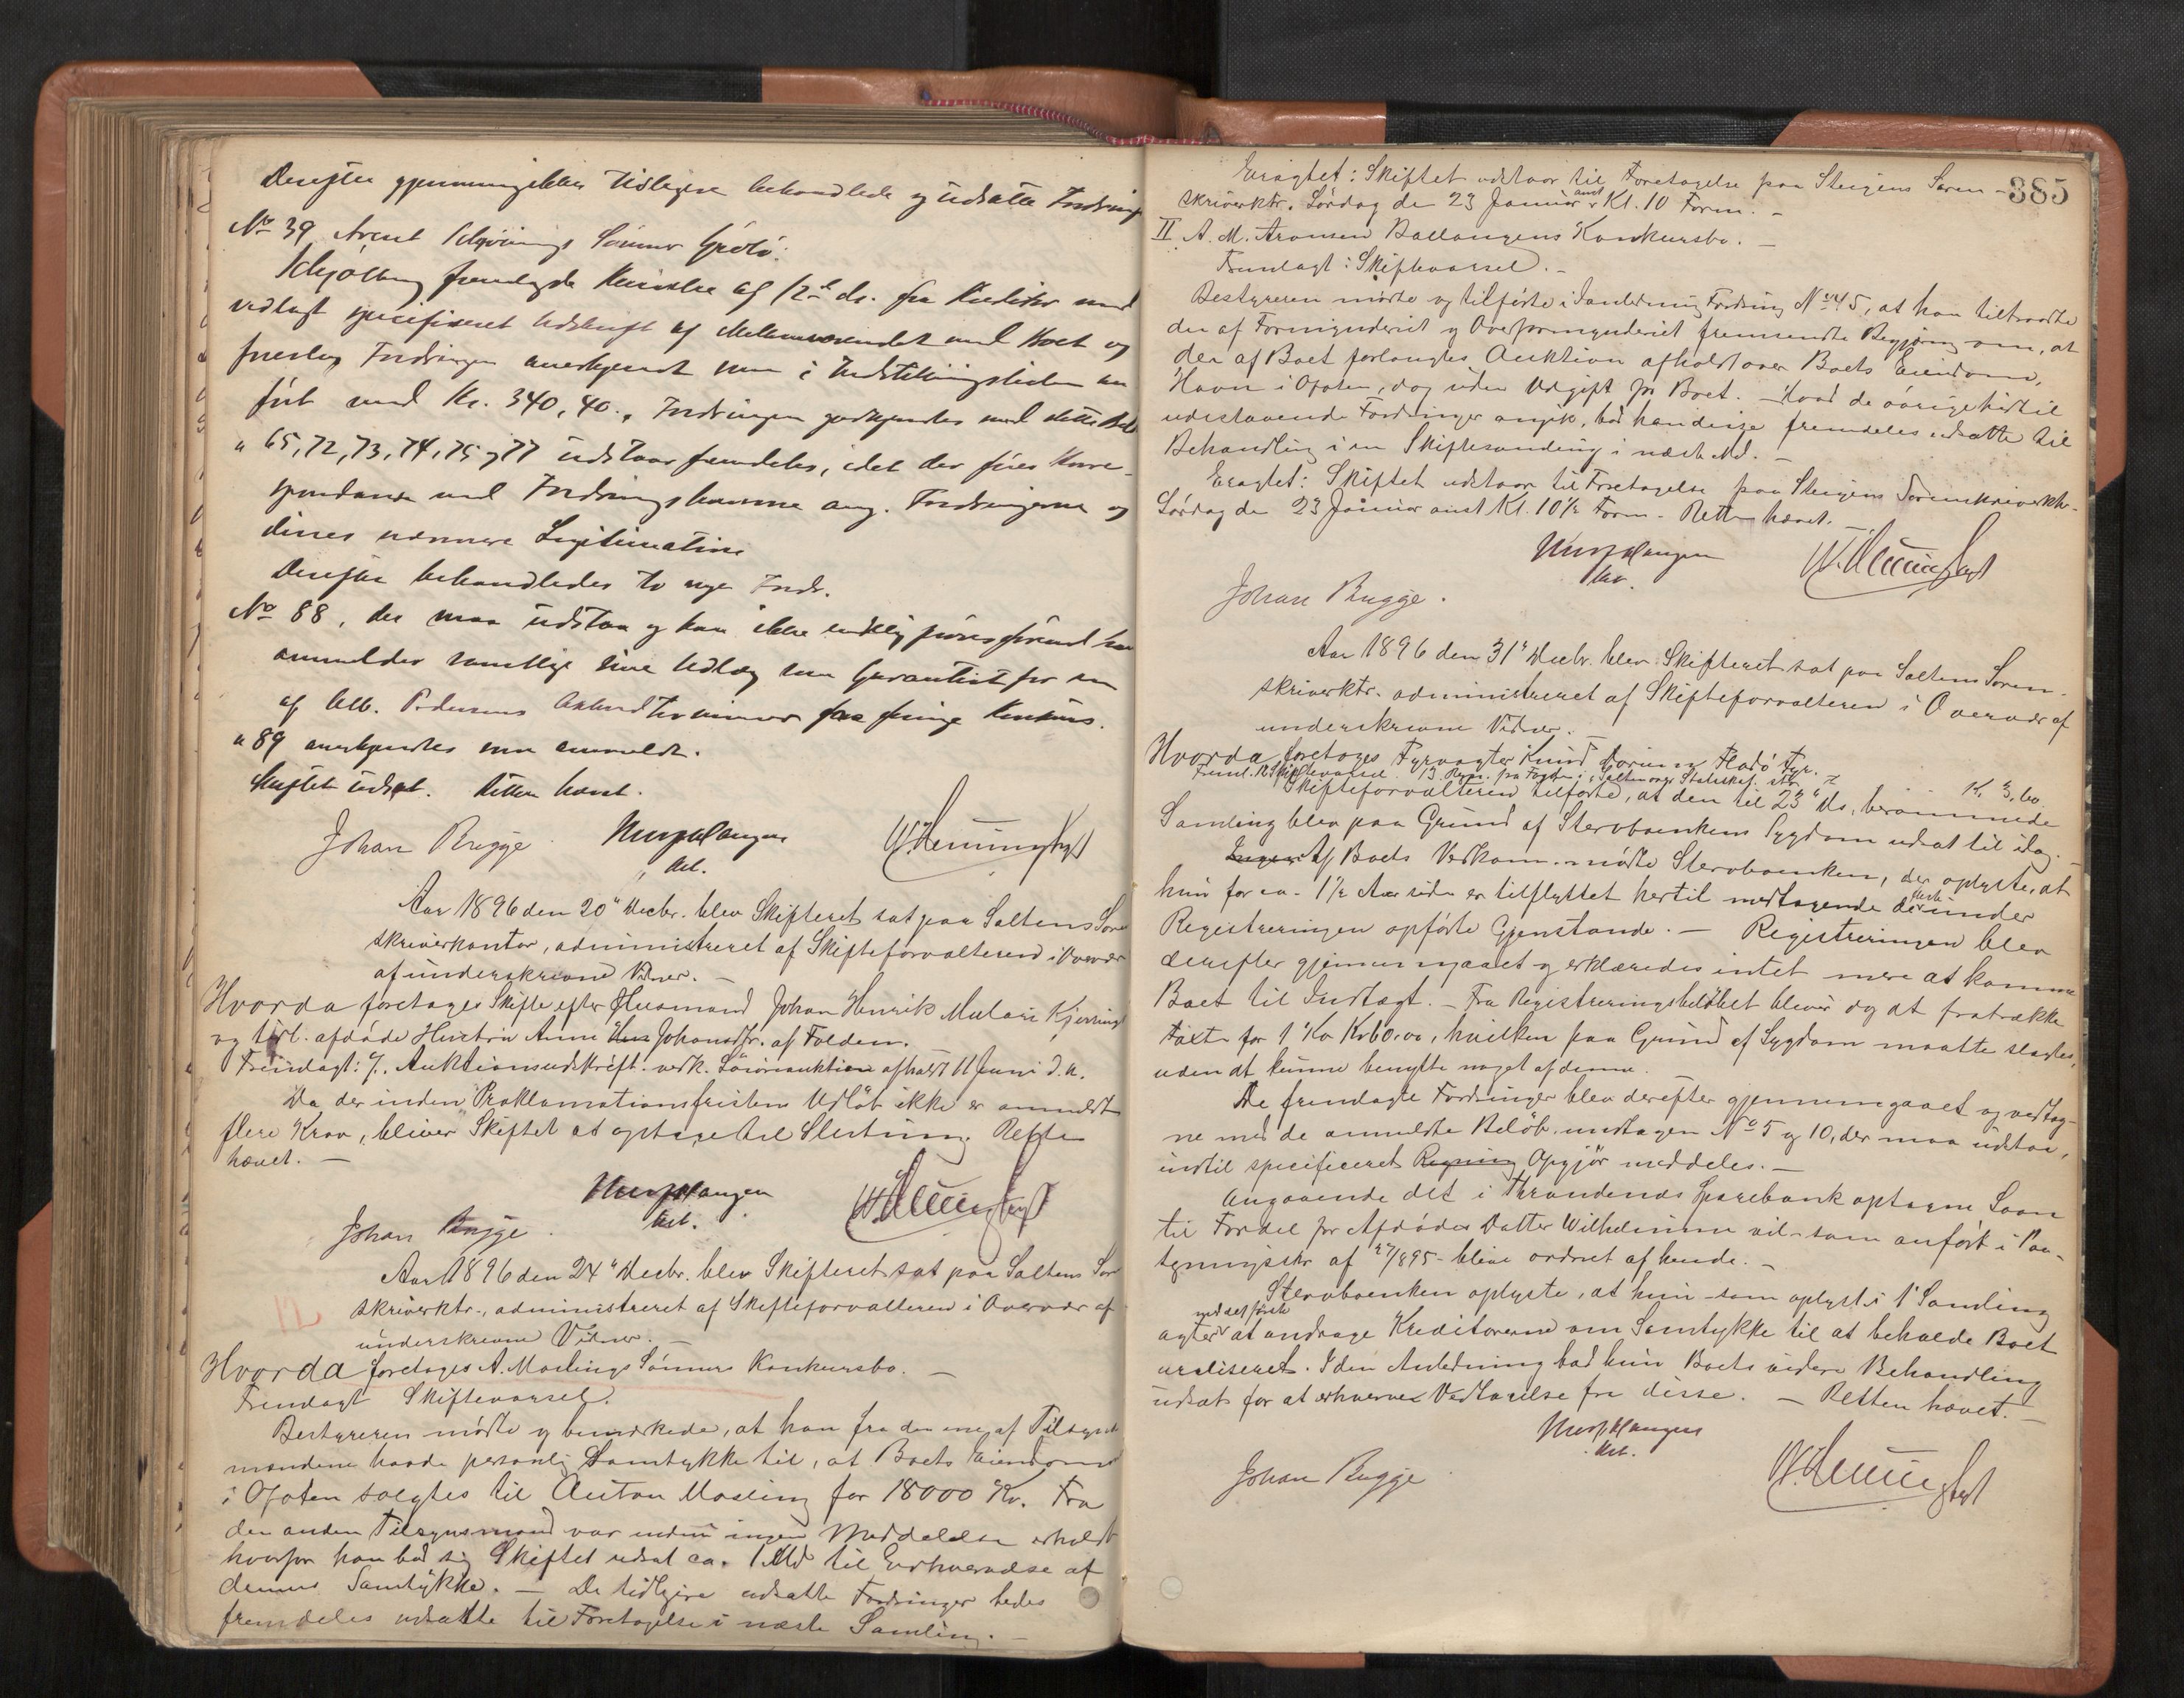 Derefter gjennemgikkes tidligere behandlede og udsatte Fordring
No 39 Arent Schjønings Sønner
Schjølberg fremlagde Skrivelse af 12te ds. fra Kreditor med
vedlagt specificeret Udskrift af Mellemværendet med Boet og
foreslog Fordringen anerkjendt som i Indstillingslisten an
ført med Kr. 340,40. Fordringen godkjendtes med dette Beløb
" 65, 72, 73, 74, 75 og 77 udstaar fremdeles, idet der føres Korre-
spondance med Fordringshaverne ang. Fordringerne og
disses nærmere Legitimation
Derefter behandledes to nye Fordr.
No 88, der maa udstaa og kan ikke endelig prøves førend han
anmelder samtlige sine Udlæg som Garantist for en
af Alb. Pedersens
" 89 anerkjendtes som anmeldt.
Skiftet udsat. Retten hævet.
Johan Bugge.
Aar 1896 den 20de Decbr. blev Skifteret sat paa Saltens Soren
skriverkontor, administreret af Skifteforvalteren i Overvær
af underskrevne Vidner. –
Hvorda foretoges Skifte efter Husmand Johan Henrik Mulari Kjerring
og tidl. afdøde Hustru Anne Johansdtr. af Folden.
Fremlagt: 7. Auktionsudskrift. vedk. Løsøreauktion afholdt 11 Juni d. A.
Da der inden Proklamationsfristens Udløb ikke er anmeldt
flere Krav, bliver Skiftet at optage til Slutning. Retten
hævet. –
Johan Bugge.
Aar 1896 den 24de Decbr. blev Skifteret sat paa Saltens Soren
skriverktr., administreret af Skifteforvalteren i Overvær af
underskrevne Vidner. –
Hvorda foretoges A. Moslings Sønners Konkursbo. –
Fremlagt Skiftevarsel.
Bestyreren mødte og bemærkede, at han fra den ene af Tilsyns
mændene havde personlig Samtykke til, at Boets Eiendom
i Ofoten solgtes til Anton Mosling for 18000 Kr. Fra
den anden Tilsynsmand var endnu ingen Meddelelse erholdt
hvorfor han bad sig Skiftet udsat ca. 1 Md til Erhvervelse af
dennes Samtykke. – De tidligere udsatte Fordringer bedes
fremdeles udsatte til Foretagelse i næste Samling. –
385
Eragtet: Skiftet udstaar til Foretagelse paa Steigens Soren-
skriverktr. Lørdag den 23 Januar anst Kl. 10 Form. –
II A. M. Aronsen Ballangens Konkursbo. –
Fremlagt: Skiftevarsel. –
Bestyreren mødte og tilførte i Anledning Fordring No 45, at han tiltraadte
den af Formynderiet og Overformynderiet fremsendte Begjæring om, at
der af Boet forlangtes Auktion afholdt over Boets Eiendom,
Havn i Ofoten, dog uden Udgift for Boet. – Hvad de øvrige hidtil
udestaaende Fordringer angik, bad han disse fremdeles udsatte til
Behandling i en Skiftesamling i næste Md. –
Eragtet: Skiftet udstaar til Foretagelse paa Steigens Sorenskriverktr.
Lørdag den 23 Januar anst Kl. 10½ Form. – Retten hævet. –
Johan Bugge.
Aar 1896 den 31te Decbr. blev Skifteret sat paa Saltens Soren-
skriverktr. administreret af Skifteforvalteren i Overvær af
underskrevne Vidner. –
Hvorda foretoges Fyrvogter Knud Flatø Fyr.
Skifteforvalteren tilførte, at den til 23de ds. berammede
Samling blev paa Grund af Stervboenkens Sygdom udsat til idag. –
Af Boets Vedkom. mødte Stervboenken, der oplyste, at
hun for ca. 1½ Aar siden er tilflyttet hertil medtagende de fleste under
Registreringen opførte Gjenstande. – Registreringen blev
derefter gjennemgaaet og erklæredes intet mere at komme
Boet til Indtægt. – Fra Registreringsbeløbet bliver dog at fratrække
Taxt for 1 Ko Kr 60.00, hvilken paa Grund af Sygdom maatte slagtes,
uden at kunne benytte noget af denne.
De fremlagte Fordringer blev derefter gjennemgaaet og vedtag-
ne med de anmeldte Beløb. undtagen No 5 og 10, der maa udstaa,
indtil specificeret Regning Opgjør meddeles. –
Angaaende det i Throndenes Sparebank optagne Laan
til Fordel for Afdødes Datter Wilhelmine vil – som anført i Paa-
tegningskr. af 27/8 95 – blive ordnet af hende. –
Stervboenken oplyste, at hun – som oplyst i 1 Samling
agter med det første at andrage Kreditorerne om Samtykke til at beholde Boet
urealiseret. I den Anledning bad hun Boets videre Behandling
udsat for at erhverve Vedtagelse fra disse. – Retten hævet. –
Johan Bugge